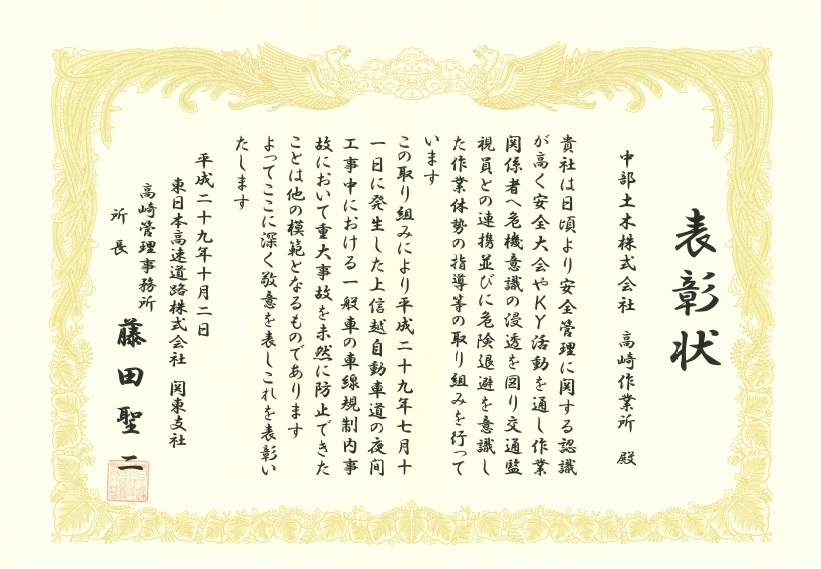 表彰状
中部土木株式会社 高崎作業所 殿
貴社は日頃より安全管理に関する認識
が高く安全大会やKY活動を通し作業
関係者へ危機意識の浸透を図り交通監
視員との連携並びに危険退避を意識し
た作業体勢の指導等の取り組みを行って
います
この取り組みにより平成二十九年七月十
一日に発生した上信越自動車道の夜間
工事中における一般車の車線規制内事
故において重大事故を未然に防止できた
ことは他の模範となるものであります
よってここに深く敬意を表しこれを表彰い
たします
平成二十九年十月二日
東日本高速道路株式会社 関東支社
高崎管理事務所
所長 藤田聖二